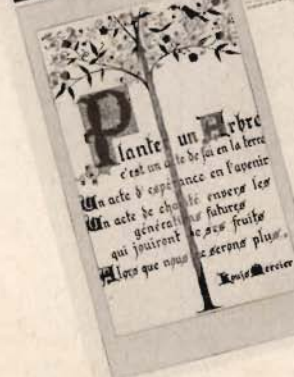 Planter un Arbre
c'est un acte de foi en la terre
Un acte d'espérance en l'avenir
Un acte de charité envers les
générations futures
qui jouiront de ses fruits
Alors que nous ne serons plus.
Louis Mercier